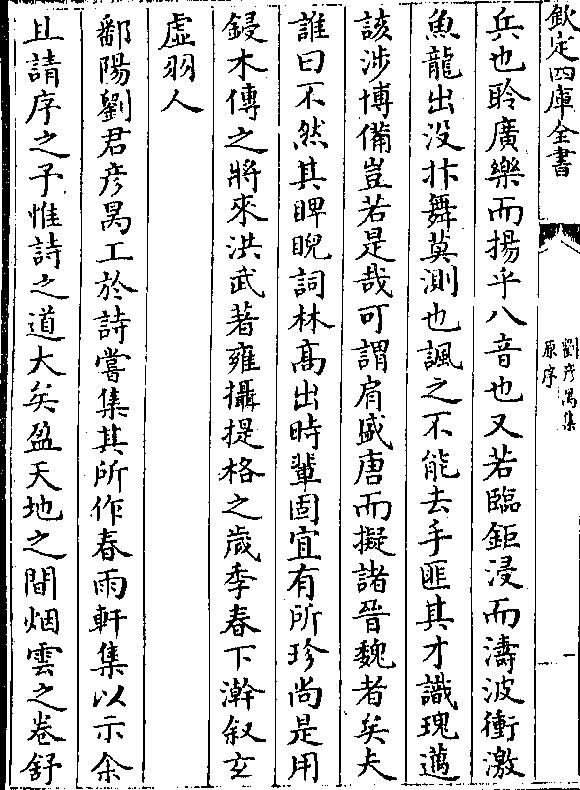 欽定四庫全書
劉彦昺集
原序
一
兵也聆廣樂而揚乎八音也又若臨鉅浸而濤波衝激
魚龍出没抃舞莫測也諷之不能去手匪其才識瑰邁
該涉博備豈若是哉可謂肩盛唐而擬諸晉魏者矣夫
誰曰不然其睥睨詞林髙出時軰固宜有所珍尚是用
鋟木傳之將來洪武著雍攝提格之歳季春下澣叙玄
虚羽人
鄱陽劉君彦昺工於詩嘗集其所作春雨軒集以示余
且請序之予惟詩之道大矣盈天地之間烟雲之卷舒